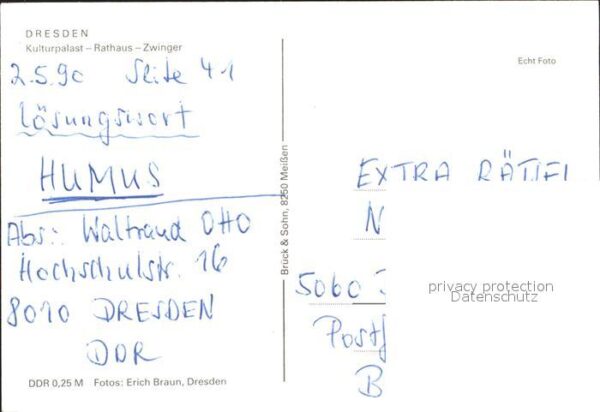 DRESDEN
Kulturpalast – Rathaus – Zwinger
2.5.90 Seite 41
Lösungswort
HUMUS
Abs.: Waltraud Otto
Hochschulstr. 16
8010 DRESDEN
DDR
DDR 0,25 M Fotos: Erich Braun, Dresden
Brück & Sohn, 8250 Meißen
Echt Foto
EXTRA RÄTSEL
N
5060
Postf
B
privacy protection
Datenschutz